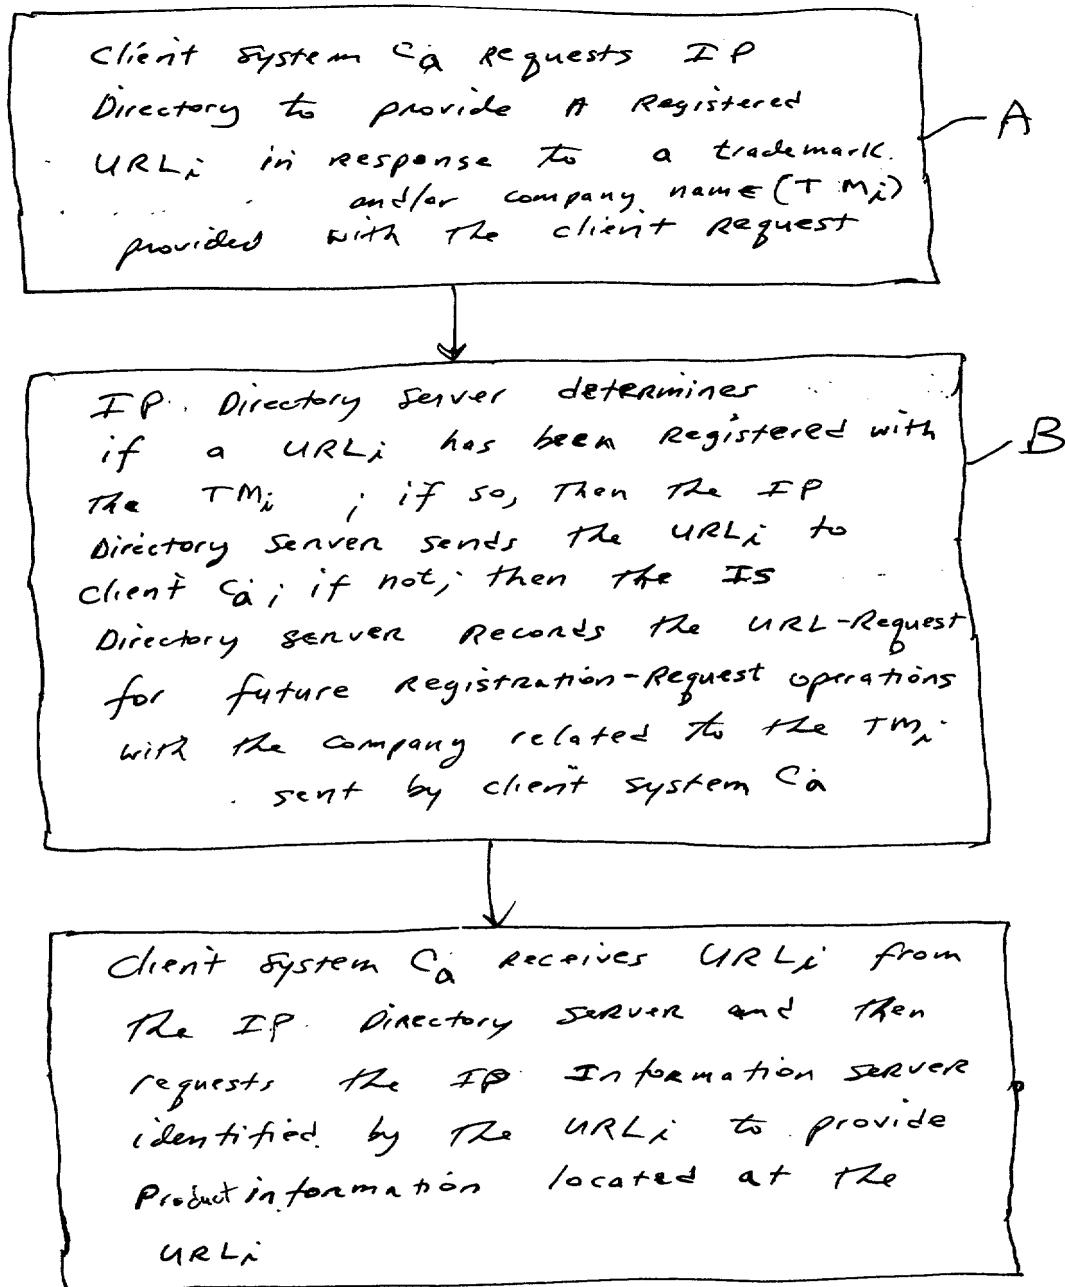 Client System Ca Requests IP
Directory to provide A Registered
URLi in response to a trademark
and/or company name (TMi)
provided with the client request
A
IP Directory Server determines
if a URLi has been registered with
the TMi ; if so, then the IP
Directory Server sends the URLi to
client Ca; if not, then the IS
Directory server Records the URL-Request
for future Registration-Request operations
with the company related to the TMi
sent by client system Ca
B
Client System Ca Receives URLi from
the IP Directory server and then
requests the IP Information server
identified by the URLi to provide
Product information located at the
URLi